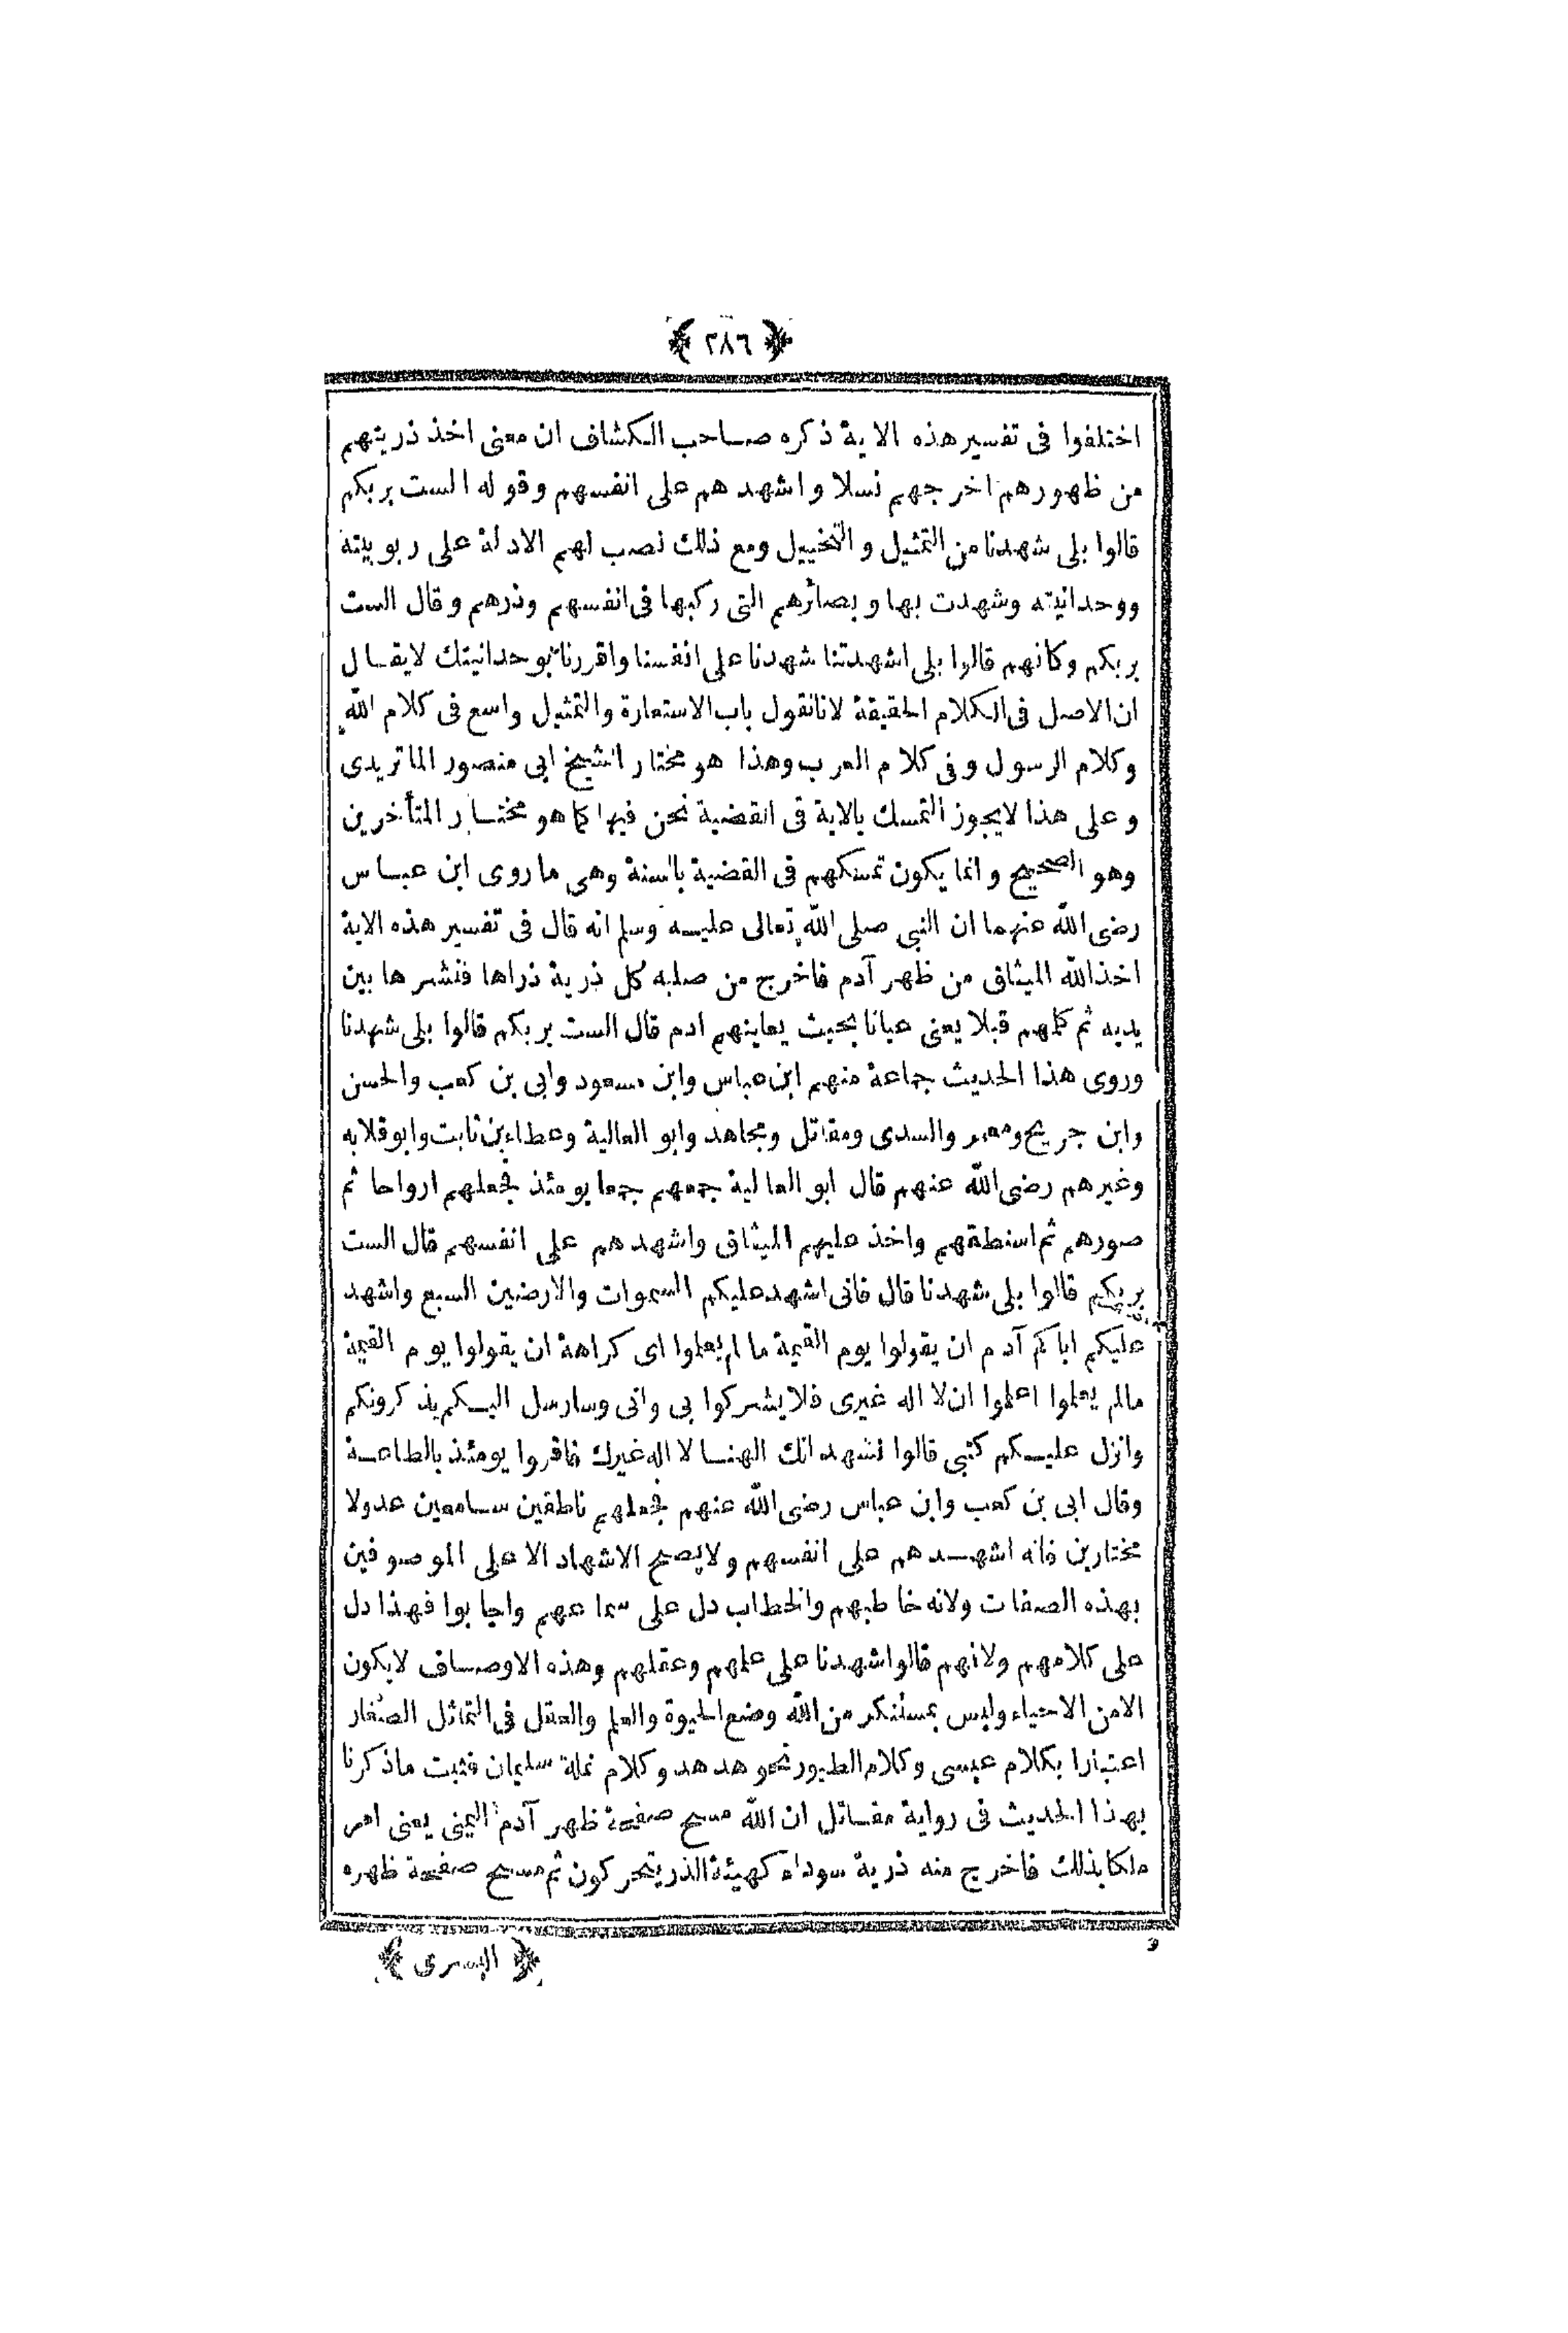 ﴿ ٢٨٦ ﴾
اختلفوا فى تفسير هذه الاية ذكره صاحب الكشاف ان معنى اخذ ذريتهم
من ظهورهم اخرجهم نسلا واشهدهم على انفسهم وقوله الست بربكم
قالوا بلى شهدنا من التمثيل والتخييل ومع ذلك نصب لهم الادلة على ربوبيته
ووحدانيته وشهدت بها وبصائرهم التى ركبها فى انفسهم وذرهم وقال الست
بربكم وكانهم قالوا بلى اشهدتنا شهدنا على انفسنا واقررنا بوحدانيتك لايقال
ان الاصل فى الكلام الحقيقة لانا نقول باب الاستعارة والتمثيل واسع فى كلام الله
وكلام الرسول وفى كلام العرب وهذا هو مختار الشيخ ابى منصور الماتريدى
وعلى هذا لايجوز التمسك بالاية فى القضية نحن فيها كما هو مختار المتأخرين
وهو الصحيح وانما يكون تمسكهم فى القضية بالسنة وهى ماروى ابن عباس
رضى الله عنهما ان النبى صلى الله تعالى عليه وسلم انه قال فى تفسير هذه الاية
اخذ الله الميثاق من ظهر آدم فاخرج من صلبه كل ذرية ذراها فنشرها بين
يديه ثم كلهم قبلا يعنى عيانا بحيث يعاينهم ادم قال الست بربكم قالوا بلى شهدنا
وروى هذا الحديث جماعة منهم ابن عباس وابن مسعود وابى بن كعب والحسن
وابن جريج ومعمر والسدى ومقاتل ومجاهد وابو العالية وعطاء بن ثابت وابو قلابه
وغيرهم رضى الله عنهم قال ابو العالية جمعهم جمعا يومئذ فجعلهم ارواحا ثم
صورهم ثم استنطقهم واخذ عليهم الميثاق واشهدهم على انفسهم قال الست
بربكم قالوا بلى شهدنا قال فانى اشهد عليكم السموات والارضين السبع واشهد
عليكم اباكم آدم ان يقولوا يوم القيمة ما لم يعلموا اى كراهة ان يقولوا يوم القيمة
مالم يعلموا اعلموا ان لا اله غيرى فلا يشركوا بى وانى وسارسل اليكم يذكرونكم
وانزل عليكم كتبى قالوا نشهد انك الهنا لا اله غيرك فاقروا يومئذ بالطاعة
وقال ابى بن كعب وابن عباس رضى الله عنهم فجعلهم ناطقين سامعين عدولا
مختارين فانه اشهدهم على انفسهم ولايصح الاشهاد الا على الموصوفين
بهذه الصفات ولانه خاطبهم والخطاب دل على سماعهم واجابوا فهذا دل
على كلامهم ولانهم قالوا شهدنا على علمهم وعقلهم وهذه الاوصاف لايكون
الا من الاحياء وليس بمستنكر من الله وضع الحيوة والعلم والعقل فى التماثل الصغار
اعتبارا بكلام عيسى وكلام الطيور نحو هدهد وكلام نملة سليمان فثبت ماذكرنا
بهذا الحديث فى رواية مقاتل ان الله مسح صفحة ظهر آدم اليمنى يعنى امر
ملكا بذلك فاخرج منه ذرية سوداء كهيئة الذر يتحركون ثم مسح صفحة ظهره
﴿ اليسرى ﴾